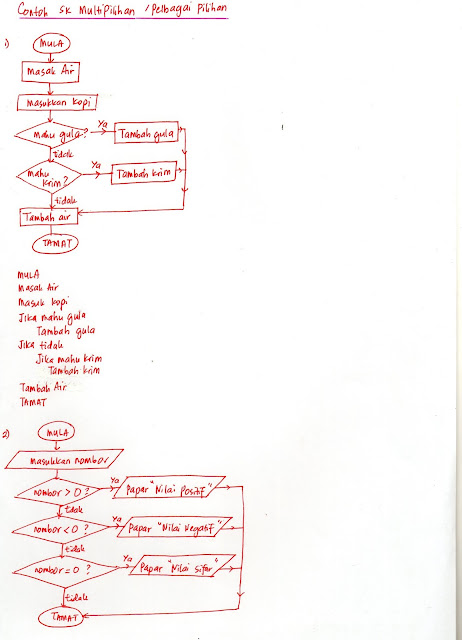 Contoh SK Multipilihan / Pelbagai Pilihan
1)
MULA
Masak Air
Masukkan Kopi
mahu gula? Ya Tambah gula
tidak
mahu krim? Ya Tambah krim
tidak
Tambah air
TAMAT
MULA
Masak Air
Masuk kopi
Jika mahu gula
Tambah gula
Jika tidak
Jika mahu krim
Tambah krim
Tambah Air
TAMAT
2)
MULA
masukkan nombor
nombor > 0 ? Ya Papar "Nilai Positif"
tidak
nombor < 0 ? Ya Papar "Nilai Negatif"
tidak
nombor = 0 ? Ya Papar "Nilai sifar"
tidak
TAMAT